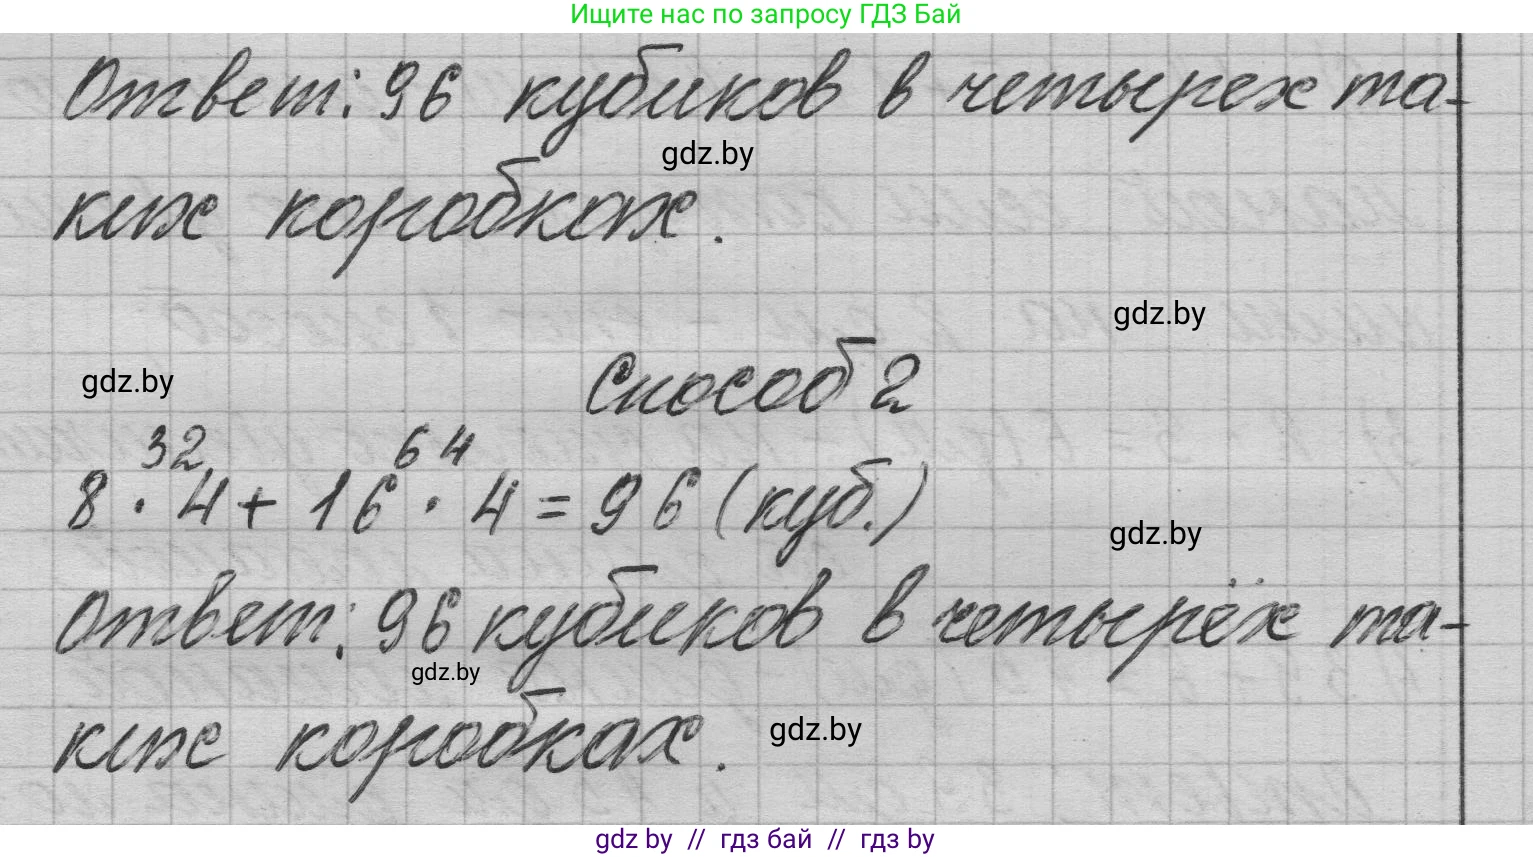 Ищите нас по запросу ГДЗ Бай
Ответ: 96 кубиков в четырех та-
gdz.by
ких коробках.
gdz.by
Способ 2
gdz.by
32 64
8 · 4 + 16 · 4 = 96 (куб.)
gdz.by
Ответ: 96 кубиков в четырёх та-
gdz.by
ких коробках.
gdz.by
gdz by // гдз бай // гдз by